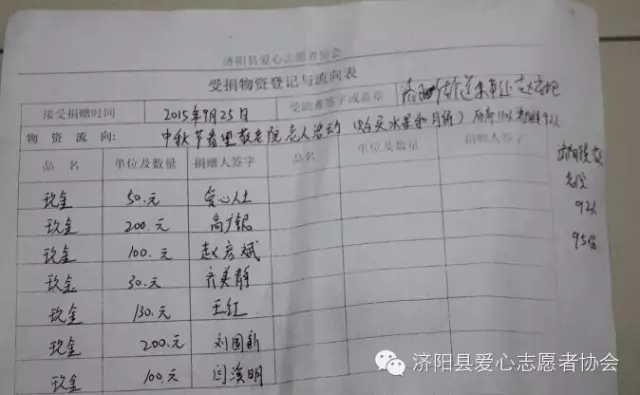 济阳县爱心志愿者协会
受捐物资登记与流向表
接受捐赠时间 2015年9月25日 受助者签字或盖章
物资流向: 中秋节看望敬老院老人活动(购买水果和月饼)
品名 单位及数量 捐赠人签字 品名 单位及数量 捐赠人签字
现金 50.元 爱心人士
现金 200.元 高广银
现金 100.元 赵彦斌
现金 30.元 齐美静
现金 130.元 王红
现金 200.元 刘国新
现金 100.元 闫溪明
92人
95位
济阳县爱心志愿者协会